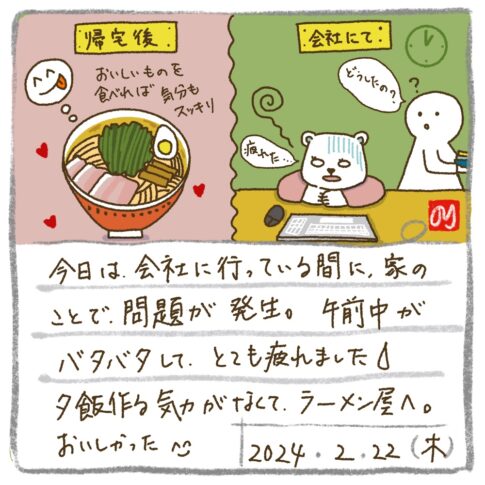 帰宅後
おいしいものを
食べれば 気分も
スッキリ
会社にて
どうしたの?
?
疲れた…
今日は、会社に行っている間に、家の
ことで、問題が発生。 午前中が
バタバタして、とても疲れました
夕飯作る気力がなくて、ラーメン屋へ。
おいしかった
2024.2.22(木)